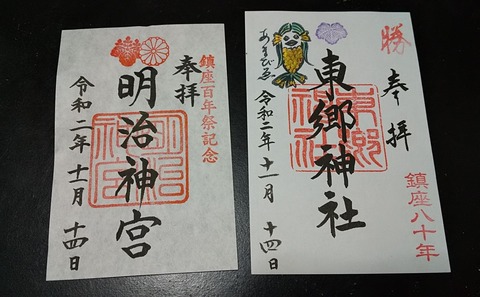 鎮座百年祭記念
奉拝
明治神宮
令和二年十一月十四日
勝
奉拝
鎮座八十年
東郷神社
東郷神社
令和二年十一月十四日
あまびゑ